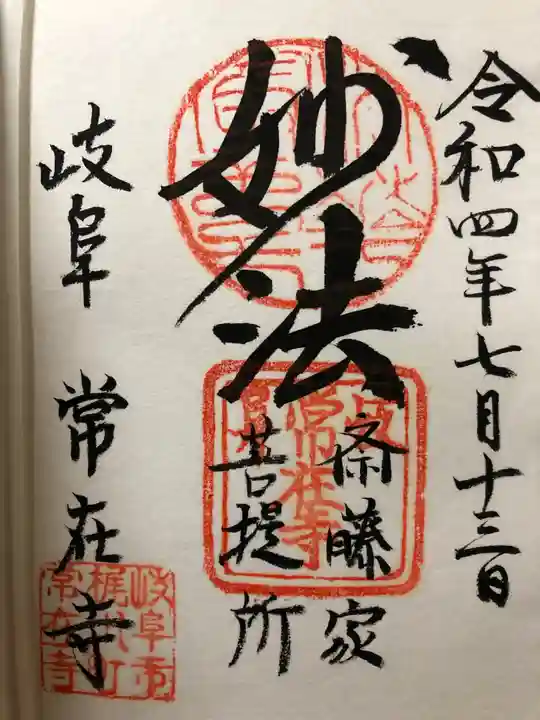 令和四年七月十三日
妙法
斎藤家
菩提所
岐阜 常在寺
岐阜市
梶川町
常在寺